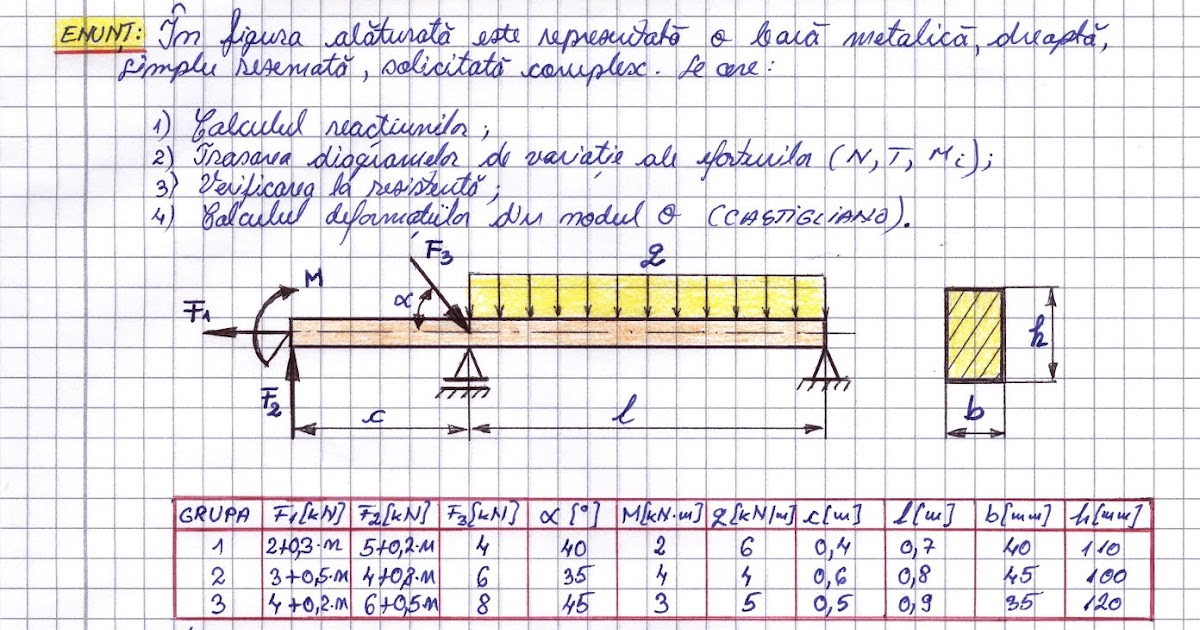 ENUNȚ: În figura alăturată este reprezentată o bară metalică, dreaptă,
simplu rezemată, solicitată complex. Se cere:
1) Calculul reacțiunilor;
2) Trasarea diagramelor de variație ale eforturilor (N, T, Mi);
3) Verificarea la rezistență;
4) Calculul deformațiilor din nodul O (CASTIGLIANO).
F3
q
M
α
F1
h
F2
c
l
b
GRUPA F1[kN] F2[kN] F3[kN] α [°] M[kN·m] q[kN/m] c[m] l[m] b[mm] h[mm]
1 2+0,3·n 5+0,2·n 4 40 2 6 0,4 0,7 40 110
2 3+0,5·n 4+0,8·n 6 35 4 4 0,6 0,8 45 100
3 4+0,2·n 6+0,5·n 8 45 3 5 0,5 0,9 35 120